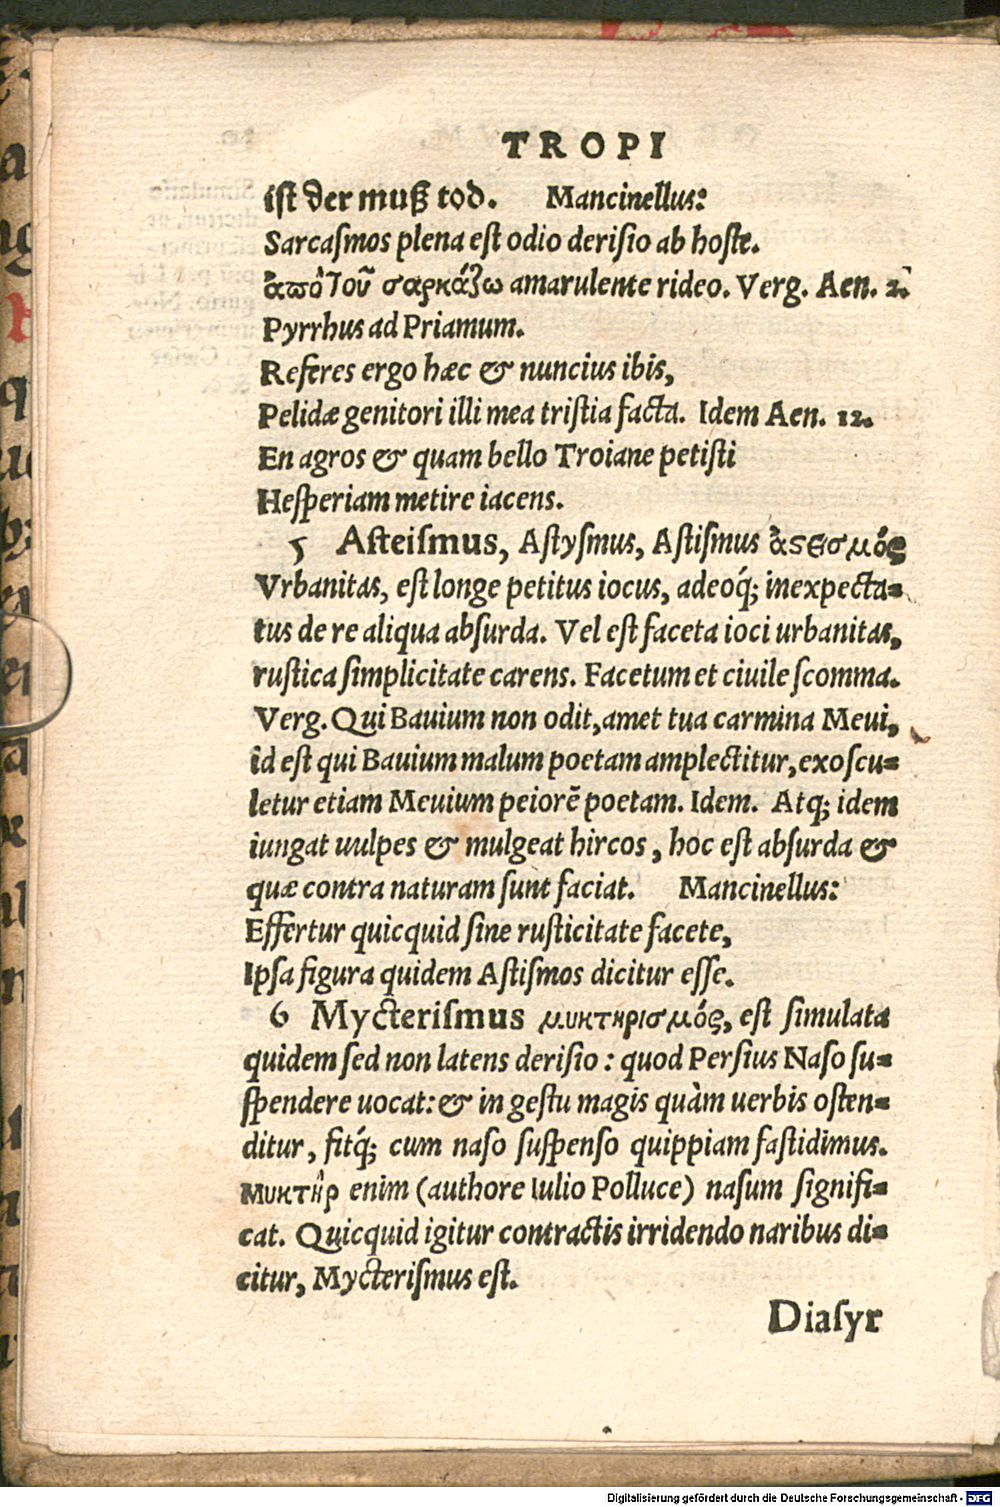 TROPI
ist der muß tod. Mancinellus:
Sarcaſmos plena eſt odio deriſio ab hoſte.
ἀπὸ τοῦ σαρκάζω amarulente rideo. Verg. Aen. 2.
Pyrrhus ad Priamum.
Referes ergo hæc & nuncius ibis,
Pelidæ genitori illi mea triſtia facta. Idem Aen. 12.
En agros & quam bello Troiane petiſti
Heſperiam metire iacens.
5 Aſteiſmus, Aſtyſmus, Aſtiſmus ἀϛεισμός
Vrbanitas, eſt longe petitus iocus, adeoq́; inexpecta-
tus de re aliqua abſurda. Vel eſt faceta ioci urbanitas,
ruſtica ſimplicitate carens. Facetum et ciuile ſcomma.
Verg. Qui Bauium non odit, amet tua carmina Meui,
id eſt qui Bauium malum poetam amplectitur, exoſcu-
letur etiam Meuium peiorē poetam. Idem. Atq; idem
iungat uulpes & mulgeat hircos, hoc eſt abſurda &
quæ contra naturam ſunt faciat. Mancinellus:
Effertur quicquid ſine ruſticitate facete,
Ipſa figura quidem Aſtiſmos dicitur eſſe.
6 Mycteriſmus μυκτηρισμός, eſt ſimulata
quidem ſed non latens deriſio: quod Perſius Naſo ſu-
ſpendere uocat: & in geſtu magis quàm uerbis oſten-
ditur, fitq́; cum naſo ſuſpenſo quippiam faſtidimus.
Μυκτὴρ enim (authore Iulio Polluce) naſum ſignifi-
cat. Quicquid igitur contractis irridendo naribus di-
citur, Mycteriſmus eſt.
Diaſyr
Digitalisierung gefördert durch die Deutsche Forschungsgemeinschaft - DFG